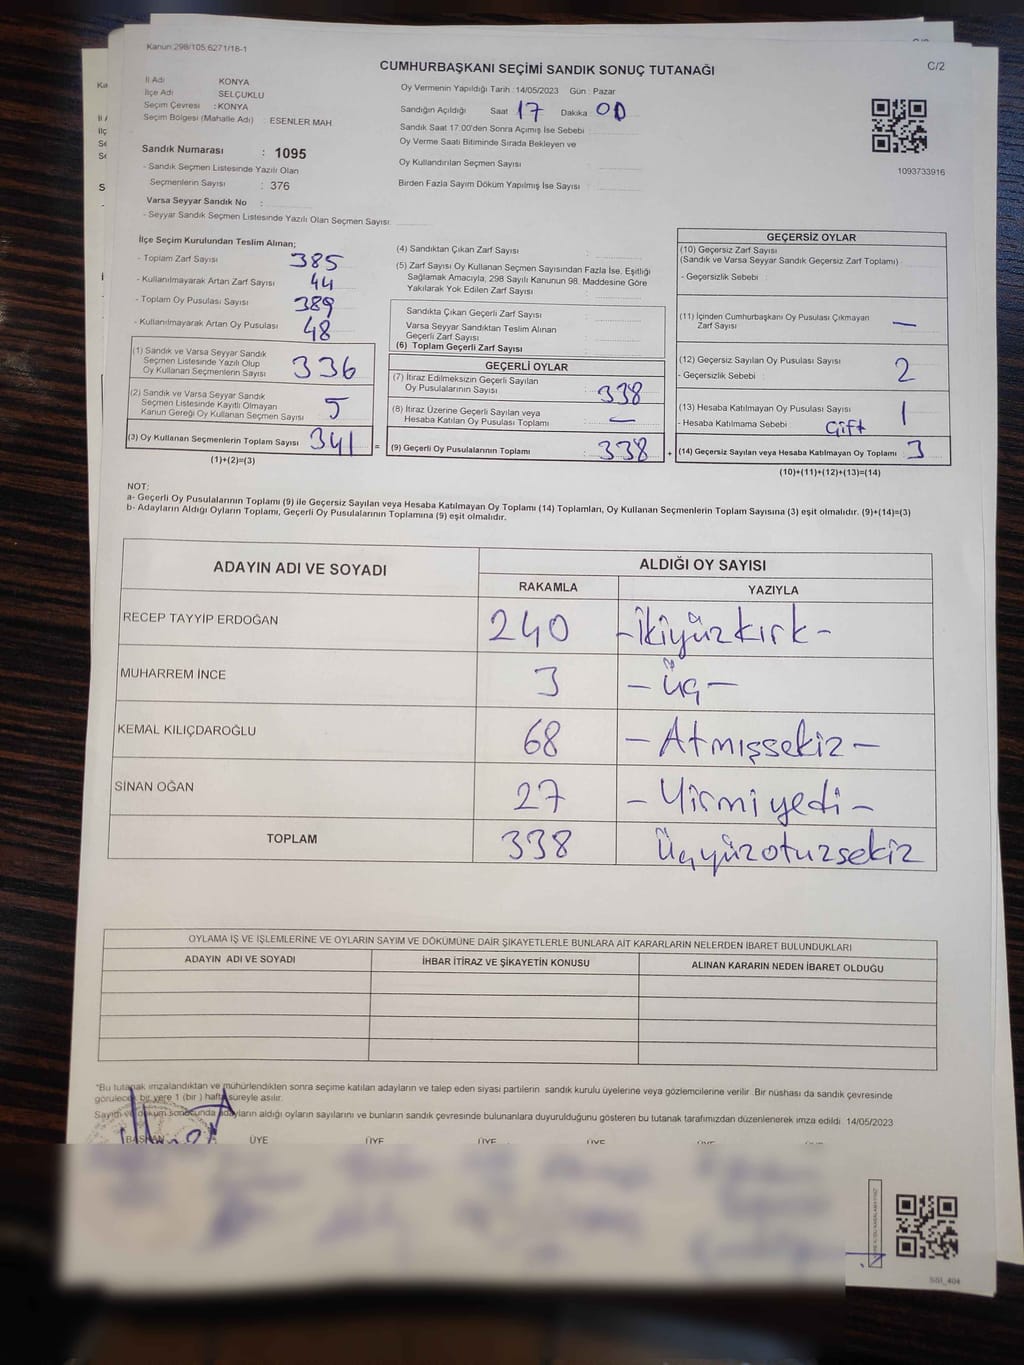 Kanun:298/105;6271/18-1
C/2
CUMHURBAŞKANI SEÇİMİ SANDIK SONUÇ TUTANAĞI
İl Adı KONYA
İlçe Adı SELÇUKLU
Seçim Çevresi : KONYA
Seçim Bölgesi (Mahalle Adı) : ESENLER MAH.
Sandık Numarası : 1095
- Sandık Seçmen Listesinde Yazılı Olan
Seçmenlerin Sayısı : 376
Varsa Seyyar Sandık No :
- Seyyar Sandık Seçmen Listesinde Yazılı Olan Seçmen Sayısı:
Oy Vermenin Yapıldığı Tarih : 14/05/2023 Gün : Pazar
Sandığın Açıldığı Saat 17 Dakika 00
Sandık Saat 17:00'den Sonra Açımış İse Sebebi :
Oy Verme Saati Bitiminde Sırada Bekleyen ve
Oy Kullandırılan Seçmen Sayısı :
Birden Fazla Sayım Döküm Yapılmış İse Sayısı :
1093733916
İlçe Seçim Kurulundan Teslim Alınan;
- Toplam Zarf Sayısı 385
- Kullanılmayarak Artan Zarf Sayısı 44
- Toplam Oy Pusulası Sayısı 389
- Kullanılmayarak Artan Oy Pusulası 48
(1) Sandık ve Varsa Seyyar Sandık
Seçmen Listesinde Yazılı Olup
Oy Kullanan Seçmenlerin Sayısı 336
(2) Sandık ve Varsa Seyyar Sandık
Seçmen Listesinde Kayıtlı Olmayan
Kanun Gereği Oy Kullanan Seçmen Sayısı 5
(3) Oy Kullanan Seçmenlerin Toplam Sayısı 341 =
(1)+(2)=(3)
(4) Sandıktan Çıkan Zarf Sayısı :
(5) Zarf Sayısı Oy Kullanan Seçmen Sayısından Fazla İse, Eşitliği
Sağlamak Amacıyla, 298 Sayılı Kanunun 98. Maddesine Göre
Yakılarak Yok Edilen Zarf Sayısı :
Sandıkta Çıkan Geçerli Zarf Sayısı :
Varsa Seyyar Sandıktan Teslim Alınan
Geçerli Zarf Sayısı :
(6) Toplam Geçerli Zarf Sayısı
GEÇERLİ OYLAR
(7) İtiraz Edilmeksizin Geçerli Sayılan
Oy Pusulalarının Sayısı : 338
(8) İtiraz Üzerine Geçerli Sayılan veya
Hesaba Katılan Oy Pusulası Toplamı : —
(9) Geçerli Oy Pusulalarının Toplamı : 338 +
GEÇERSİZ OYLAR
(10) Geçersiz Zarf Sayısı
(Sandık ve Varsa Seyyar Sandık Geçersiz Zarf Toplamı) :
- Geçersizlik Sebebi :
(11) İçinden Cumhurbaşkanı Oy Pusulası Çıkmayan
Zarf Sayısı : —
(12) Geçersiz Sayılan Oy Pusulası Sayısı : 2
- Geçersizlik Sebebi :
(13) Hesaba Katılmayan Oy Pusulası Sayısı : 1
- Hesaba Katılmama Sebebi : Çift
(14) Geçersiz Sayılan veya Hesaba Katılmayan Oy Toplamı : 3
(10)+(11)+(12)+(13)=(14)
NOT:
a- Geçerli Oy Pusulalarının Toplamı (9) ile Geçersiz Sayılan veya Hesaba Katılmayan Oy Toplamı (14) Toplamları, Oy Kullanan Seçmenlerin Toplam Sayısına (3) eşit olmalıdır. (9)+(14)=(3)
b- Adayların Aldığı Oyların Toplamı, Geçerli Oy Pusulalarının Toplamına (9) eşit olmalıdır.
ADAYIN ADI VE SOYADI ALDIĞI OY SAYISI
RAKAMLA YAZIYLA
RECEP TAYYİP ERDOĞAN 240 -İkiyüzkırk-
MUHARREM İNCE 3 -Üç-
KEMAL KILIÇDAROĞLU 68 -Atmışsekiz-
SİNAN OĞAN 27 -Yirmiyedi-
TOPLAM 338 Üçyüzotuzsekiz
OYLAMA İŞ VE İŞLEMLERİNE VE OYLARIN SAYIM VE DÖKÜMÜNE DAİR ŞİKAYETLERLE BUNLARA AİT KARARLARIN NELERDEN İBARET BULUNDUKLARI
ADAYIN ADI VE SOYADI İHBAR İTİRAZ VE ŞİKAYETİN KONUSU ALINAN KARARIN NEDEN İBARET OLDUĞU
"Bu tutanak imzalandıktan ve mühürlendikten sonra seçime katılan adayların ve talep eden siyasi partilerin sandık kurulu üyelerine veya gözlemcilerine verilir. Bir nüshası da sandık çevresinde
görülecek bir yere 1 (bir ) hafta süreyle asılır.
Sayım ve döküm sonucunda adayların aldığı oyların sayılarını ve bunların sandık çevresinde bulunanlara duyurulduğunu gösteren bu tutanak tarafımızdan düzenlenerek imza edildi. 14/05/2023
BAŞKAN ÜYE ÜYE ÜYE ÜYE ÜYE